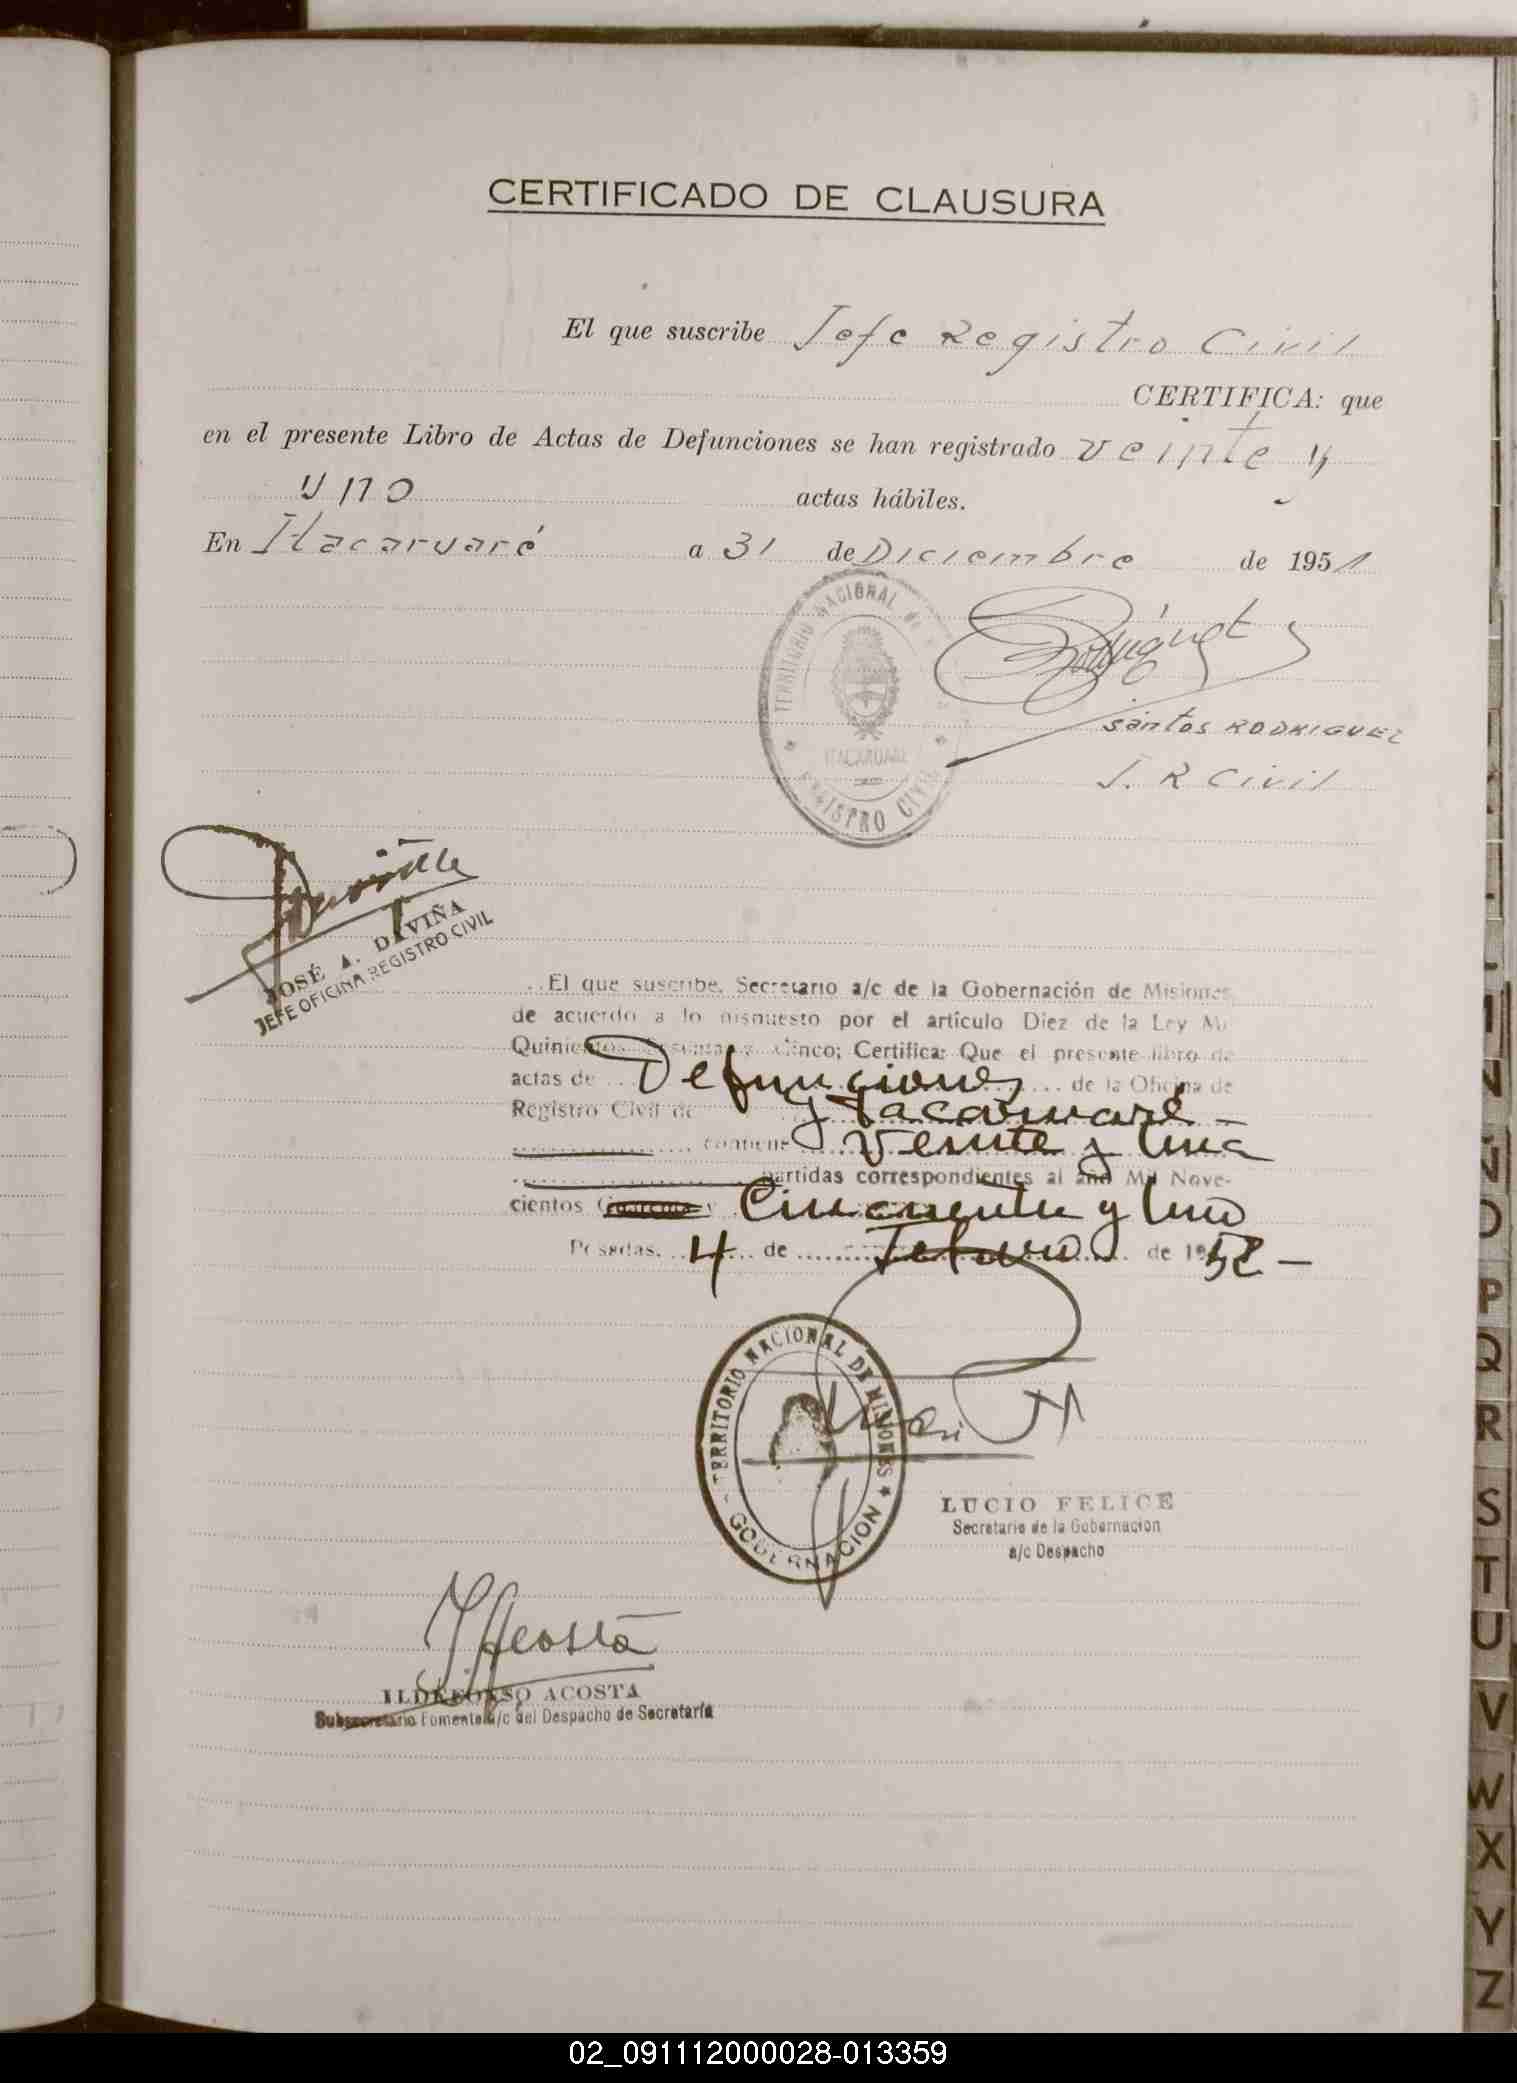 CERTIFICADO DE CLAUSURA
El que suscribe Jefe Registro Civil
CERTIFICA: que
en el presente Libro de Actas de Defunciones se han registrado veinte y
uno actas hábiles.
En Itacaruaré a 31 de Diciembre de 1951
TERRITORIO NACIONAL DE
ITACARUARE
REGISTRO CIVIL
Santos RODRIGUEZ
J. R Civil
JOSÉ A. DAVIÑA
JEFE OFICINA REGISTRO CIVIL
El que suscribe, Secretario a/c de la Gobernación de Misiones,
de acuerdo a lo dispuesto por el artículo Diez de la Ley Mil
Quinientos Sesenta y Cinco; Certifica: Que el presente libro de
actas de Defunciones de la Oficina de
Registro Civil de Itacaruaré -
contiene Veinte y Una
partidas correspondientes al año Mil Nove-
cientos Cuarenta y Cincuenta y Uno
Posadas, 4 de Febrero de 1952 -
TERRITORIO NACIONAL DE MISIONES
GOBERNACION
LUCIO FELICE
Secretario de la Gobernacion
a/c Despacho
Acosta
ILDEFONSO ACOSTA
Subsecretario Fomento a/c del Despacho de Secretaría
M
N
Ñ
O
P
Q
R
S
T
U
V
W
X
Y
Z
02_091112000028-013359